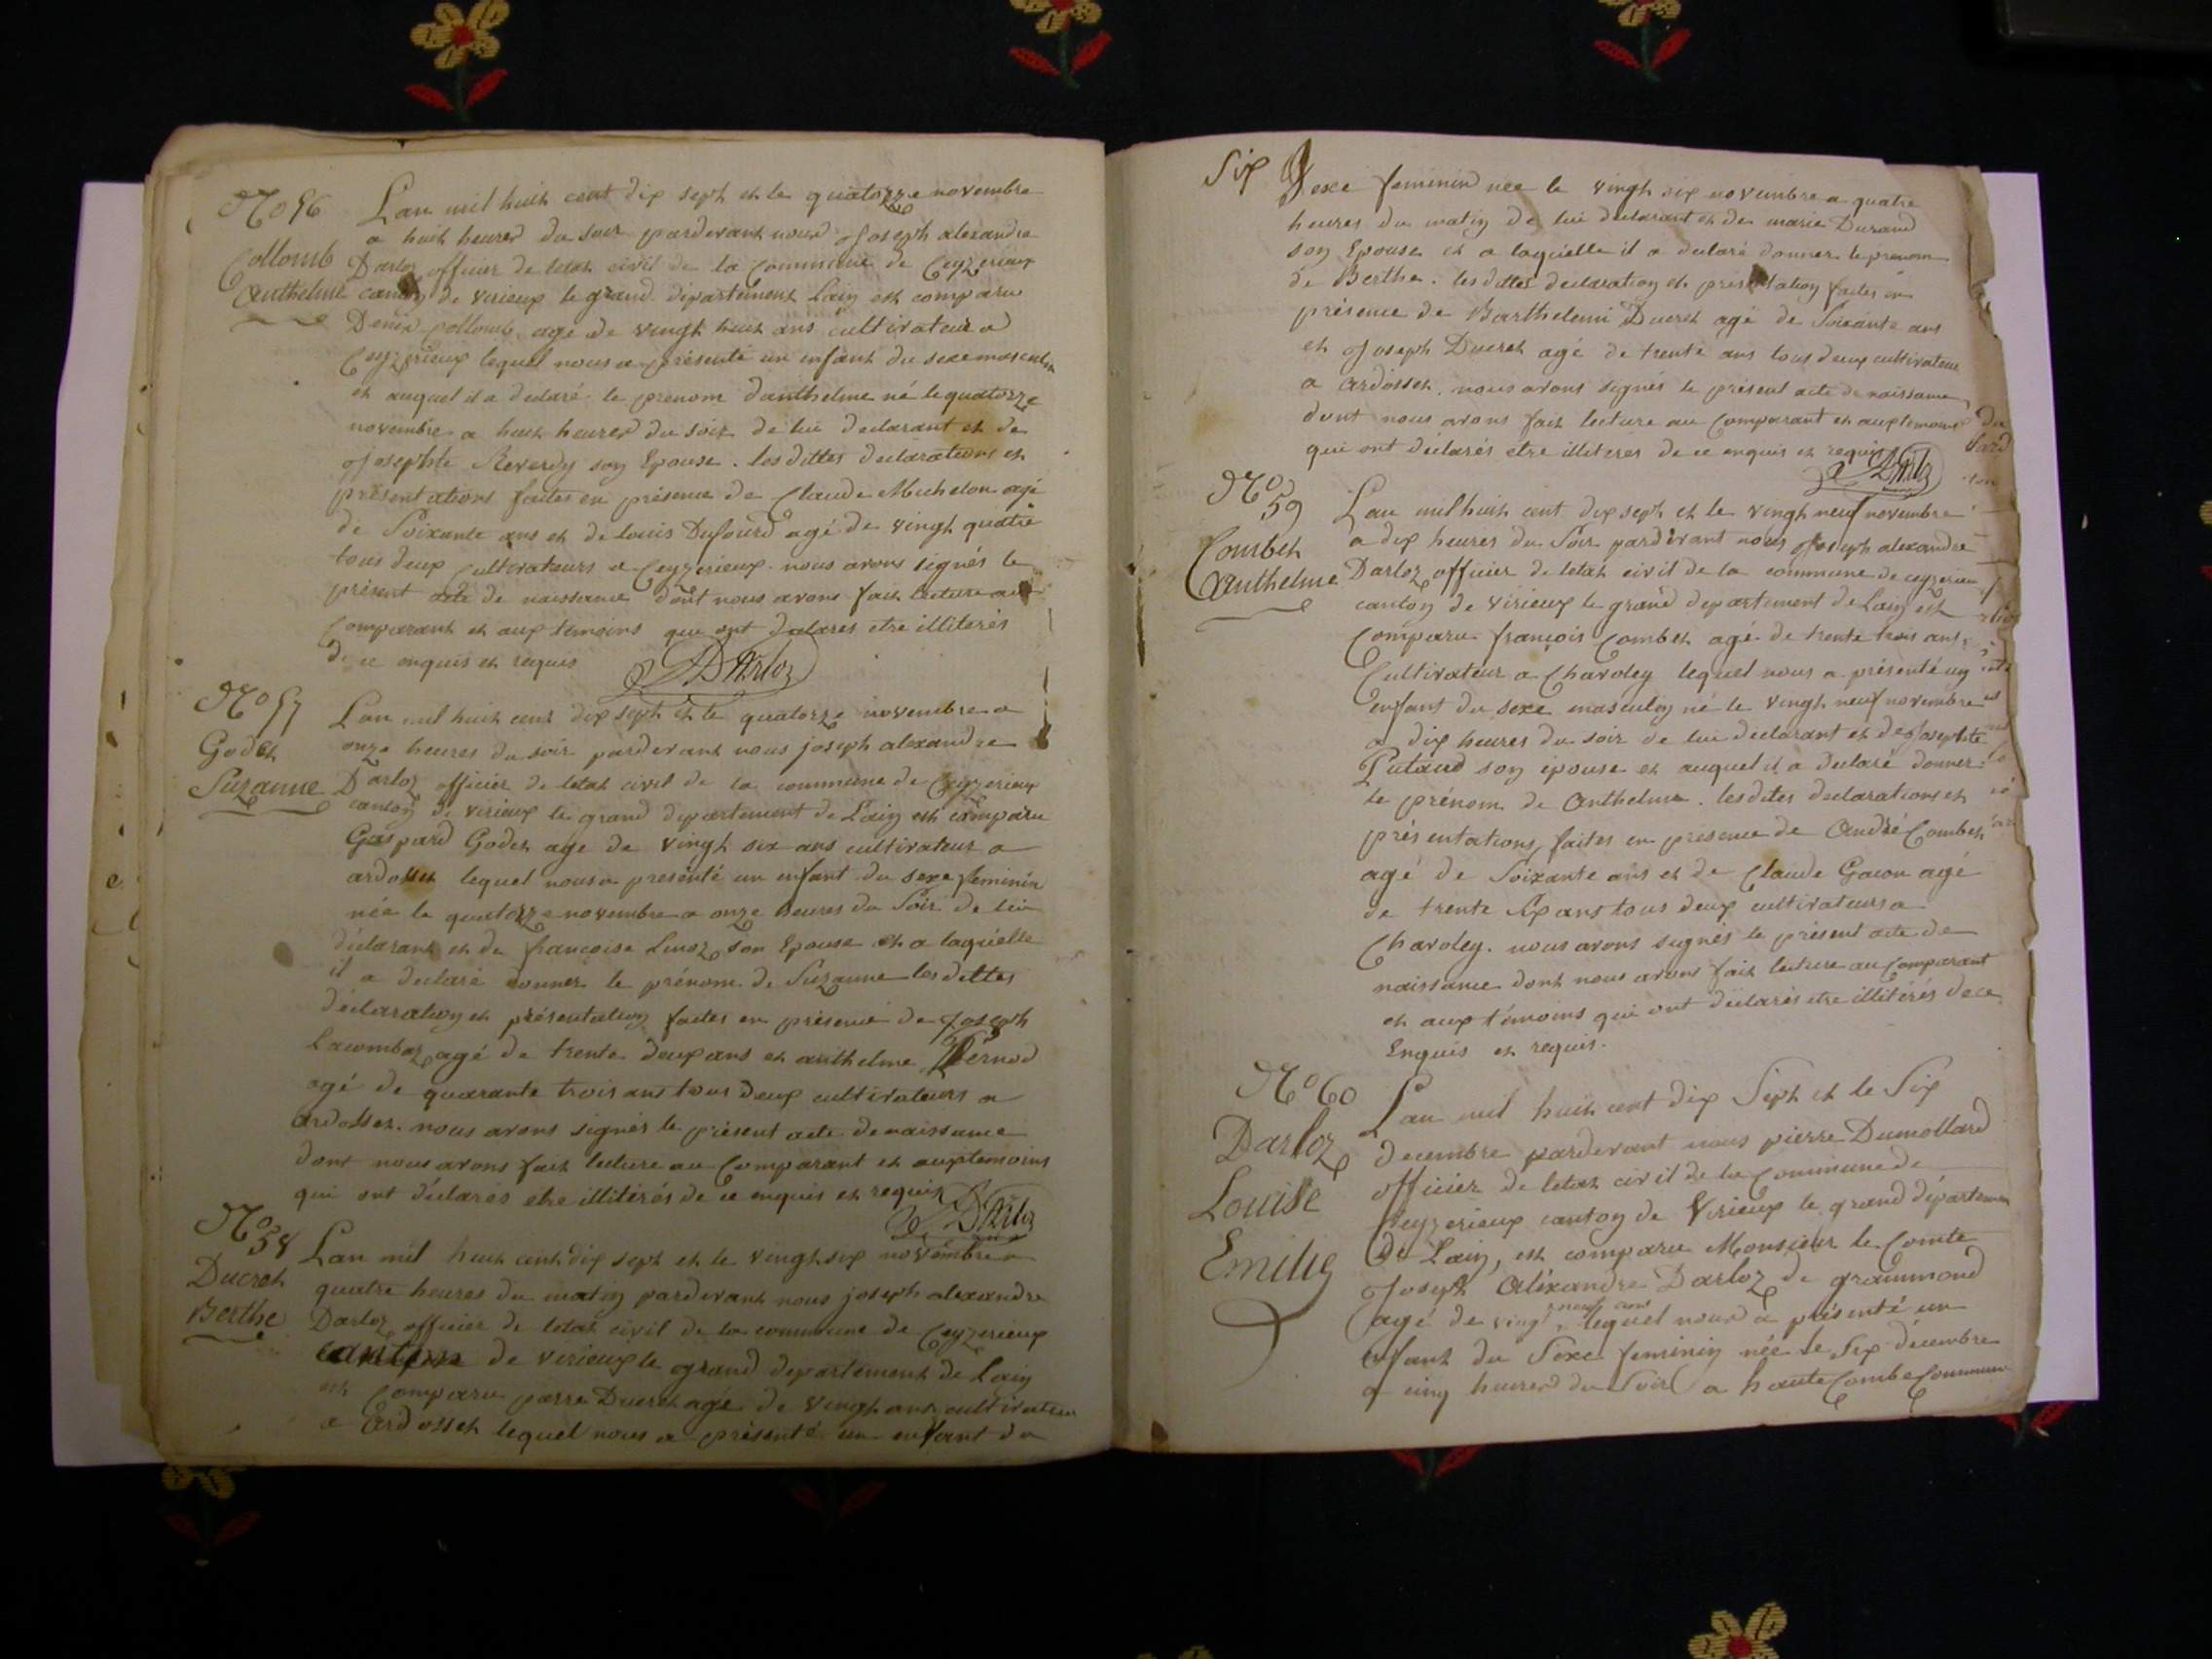 No 56
Collomb
Anthelme
Lan mil huit cent dix sept et le quatorze novembre
a huit heures du soir pardevant nous Joseph alexandre
Darloz officier de letat civil de la commune de Ceyzerieux
canton de virieux le grand département Lain est comparu
Denis Collomb agé de vingt huit ans cultivateur a
Ceyzerieux lequel nous a présenté un enfant du sexe masculin
et auquel il a declaré le prenom danthelme né le quatorze
novembre a huit heures du soir de lui declarant et de
Josephte Reverdy son Epouse . les dittes declarations et
présentations faites en présence de Claude Michelon agé
de Soixante ans et de louis Dufourd agé de vingt quatre
tous deux Cultivateurs a Ceyzerieux . nous avons signés le
présent acte de naissance dont nous avons fait lecture au
Comparant et aux temoins qui ont declarés etre illiterés
de ce enquis et requis
Darloz
No 57
Godet
Suzanne
Lan mil huit cent dix sept et le quatorze novembre a
onze heures du soir pardevant nous joseph alexandre
Darloz officier de letat civil de la commune de Ceyzerieux
canton de virieux le grand departement de Lain est comparu
Gaspard Godet age de vingt six ans cultivateur a
ardosset lequel nous a presenté un enfant du sexe feminin
née le quatorze novembre a onze heures du Soir de lui
déclarant et de francoise Linoz son Epouse et a laquelle
il a declaré donner le prénom de Suzanne les dittes
déclaration et présentation faites en présence de Joseph
Lacombaz agé de trente deux ans et anthelme Pernod
agé de quarante trois ans tous deux cultivateurs a
ardosset . nous avons signés le présent acte de naissance
dont nous avons fait lecture au Comparant et aux temoins
qui ont déclarés etre illitérés de ce enquis et requis
Darloz
No 58
Ducret
Berthe
Lan mil huit cent dix sept et le vingt six novembre a
quatre heures du matin pardevant nous joseph alexandre
Darloz officier de letat civil de la commune de Ceyzerieux
canton de virieux le grand departement de Lain
est Comparu pierre Ducret agé de vingt ans cultivateur
a Ardosset lequel nous a présenté un enfant du
Six
Sexe feminin née le vingt six novembre a quatre
heures du matin de lui declarant et de marie Durand
son Epouse et a laquelle il a declaré donner le prenom
de Berthe . les dittes declaration et présentation faites en
présence de Barthelemi Ducret agé de Soixante ans
et Joseph Ducret agé de trente ans tous deux cultivateur
a ardosset . nous avons signés le présent acte de naissance
dont nous avons fait lecture au Comparant et aux temoins
qui ont déclarés etre illiterés de ce enquis et requis
Darloz
No 59
Combet
Anthelme
Lan mil huit cent dix sept et le vingt neuf novembre
a dix heures du Soir pardevant nous Joseph alexandre
Darloz officier de letat civil de la commune de ceyzerieu
canton de virieux le grand departement de Lain est
Comparu françois Combet agé de trente trois ans
Cultivateur a Chavoley lequel nous a présenté un
enfant du sexe masculin né le vingt neuf novembre
a dix heures du soir de lui declarant et de Josephte
Putaud son épouse et auquel il a declaré donner
le prénom de Anthelme . les dites declarations et
présentations faites en presence de André Combet
agé de Soixante ans et de Claude Gacon agé
de trente Six ans tous deux cultivateurs a
Chavoley . nous avons signés le présent acte de
naissance dont nous avons fait lecture au Comparant
et aux témoins qui ont déclarés etre illitérés de ce
Enquis et requis .
No 60
Darloz
Louise
Emilie
Lan mil huit cent dix Sept et le Six
decembre pardevant nous pierre Dumollard
officier de letat civil de la Commune de
Ceyzerieux canton de Virieux le grand département
De Lain, est comparu Monsieur le Comte
Joseph Aléxandre Darloz de grammond
agé de vingt neuf ans lequel nous a présenté un
enfant du Sexe feminin née le Six décembre
a cinq heures du Soir a haute Combe Commune